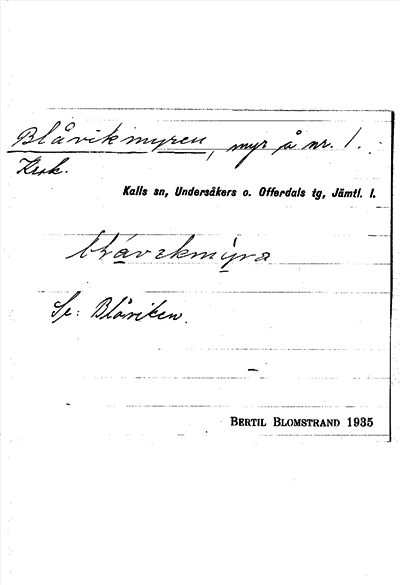 Blåvikmyren, myr å nr. 1.
Krok.
Kalls sn, Undersåkers o. Offerdals tg, Jämtl. l.
Se: Blåviken.
BERTIL BLOMSTRAND 1935